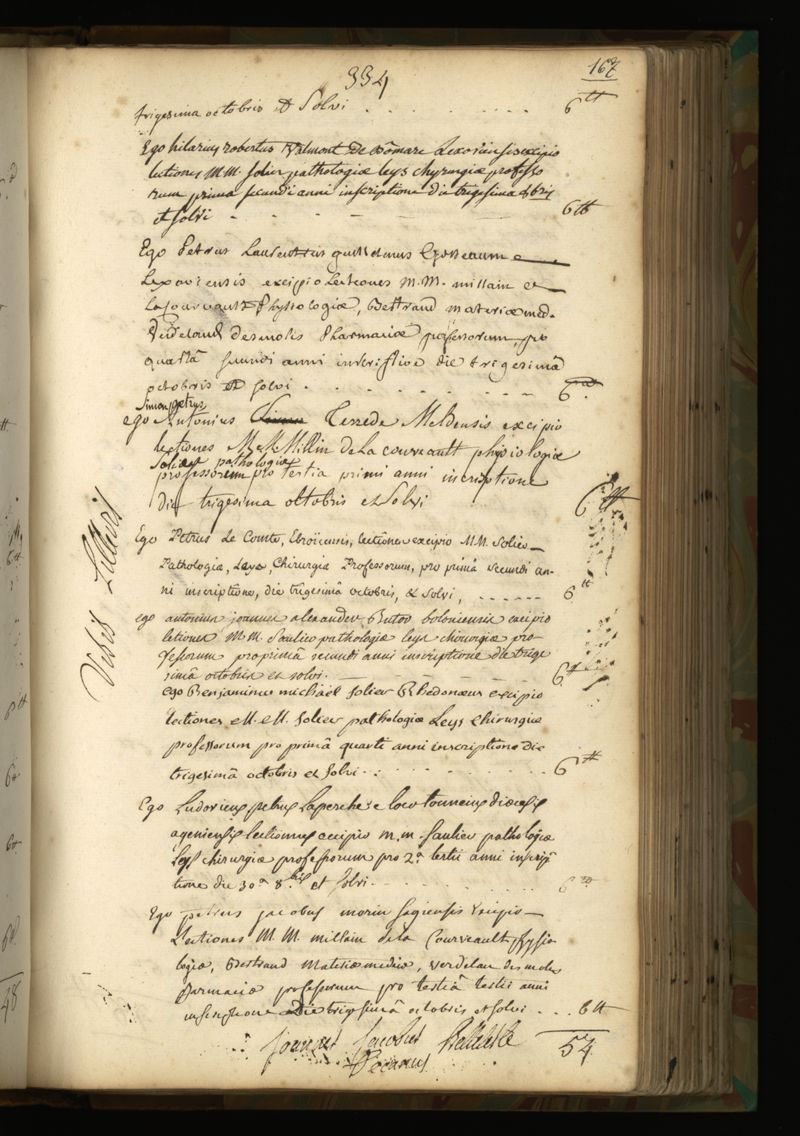 334
167
trigesima octobris et Solvi . . . . . . . . . 6 ᵗᵗ
Ego hilarius robertus Valmont De Bomare Lexoviensis excipio
lectiones M.M. solier pathologiæ leys chyrurgiæ professo
rum prima secundi anni inscriptione die trigesima 8bris
et solvi - - - - - - - 6 ᵗᵗ
Ego Petrus Laurentius guillelmus
Lexoviensis, excipio Lectiones M.M. millain et
Lacourvault Physologiæ, Bertrand materiæ med.
Verdeland desmolis Pharmaciæ professorum, pro
quartâ secundi anni inscriptione die trigesimâ
octobris et solvi . . . . . . . . . 6 ᵗᵗ
Simon petrus
ego Antonius Terrede Meldensis excipio
lectiones M.M. Millin de La courveault physiologiæ
Solier pathologiæ
professorum pro tertia primi anni inscriptione
die trigesima octobris et Solvi 6 ᵗᵗ
Ego Petrus Le Comte, Ebroïcensis, lectiones excipio M.M. Solier
Pathologiæ, Leys, Chirurgiæ Professorum, pro primâ secundi an-
ni inscriptione, die trigesimâ octobris, et Solvi, - - - - - - 6 ᵗᵗ
ego antonius joannes alexander Butor boloniensis excipio
letiones M.M. Saulier pathologiæ leys chirurgiæ pro-
fessorum pro primâ secundi anni inscriptione die trige
simâ octobris et solvi. - - - - - - 6 ᵗᵗ
ego Benjaminus michaël solier Rhedonæus excipio
Lectiones M.M. Solier pathologiæ Leys Chirurgiæ
professorum pro primâ quarti anni inscriptione die
trigesimâ octobris et solvi . . . . . . . . . 6 ᵗᵗ
Ego Ludovicus petrus Laperche e loco tonneins diœcesis
ageniensis lectiones excipio m.m. saulier pathologiæ
Leys chirurgiæ professorum pro 2ᵃ tertii anni inscrip
tione die 30ᵃ 8bris et solvi . . . . . . . 6 ᵗᵗ
Ego petrus jacobus morin sagiensis excipio
Lectiones M.M. millain dela Courveault physio
logiæ, Bertrand Materiæ mediæ, verdelan desmoles
pharmaciæ professorum pro tertiâ tertii anni
inscriptione Die trigesimâ octobris et solvi . . . 6 ᵗᵗ
Jacobus
Decanus
54